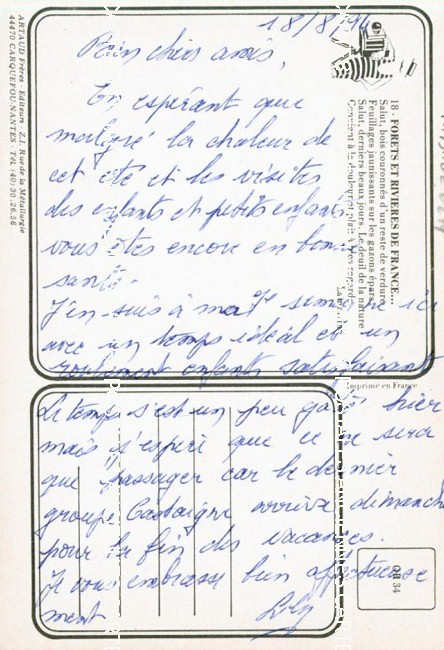 18/8/94
Bien chers amis,
En espérant que
malgré la chaleur de
cet été et les visites
des enfants et petits enfants
vous êtes encore en bonne
santé.
J'en suis à ma semaine ici
avec un temps idéal et un
roulement enfants satisfaisant
Le temps s'est un peu gâté hier
mais j'espère que ce ne sera
que passager car le dernier
groupe Castaigne arrive dimanche
pour la fin des vacances.
Je vous embrasse bien affectueuse
ment Lily
18 - FORETS ET RIVIERES DE FRANCE....
Salut, bois couronnés d'un reste de verdure,
Feuillages jaunissants sur les gazons épars,
Salut, derniers beaux jours. Le deuil de la nature
Convient à la douleur et plaît à mes regards.
Imprimé en France
QB 34
ARTAUD Frères - Editeurs - Z.I. Rue de la Métallurgie
44470 CARQUEFOU-NANTES - Tél. (40) 30.26.56